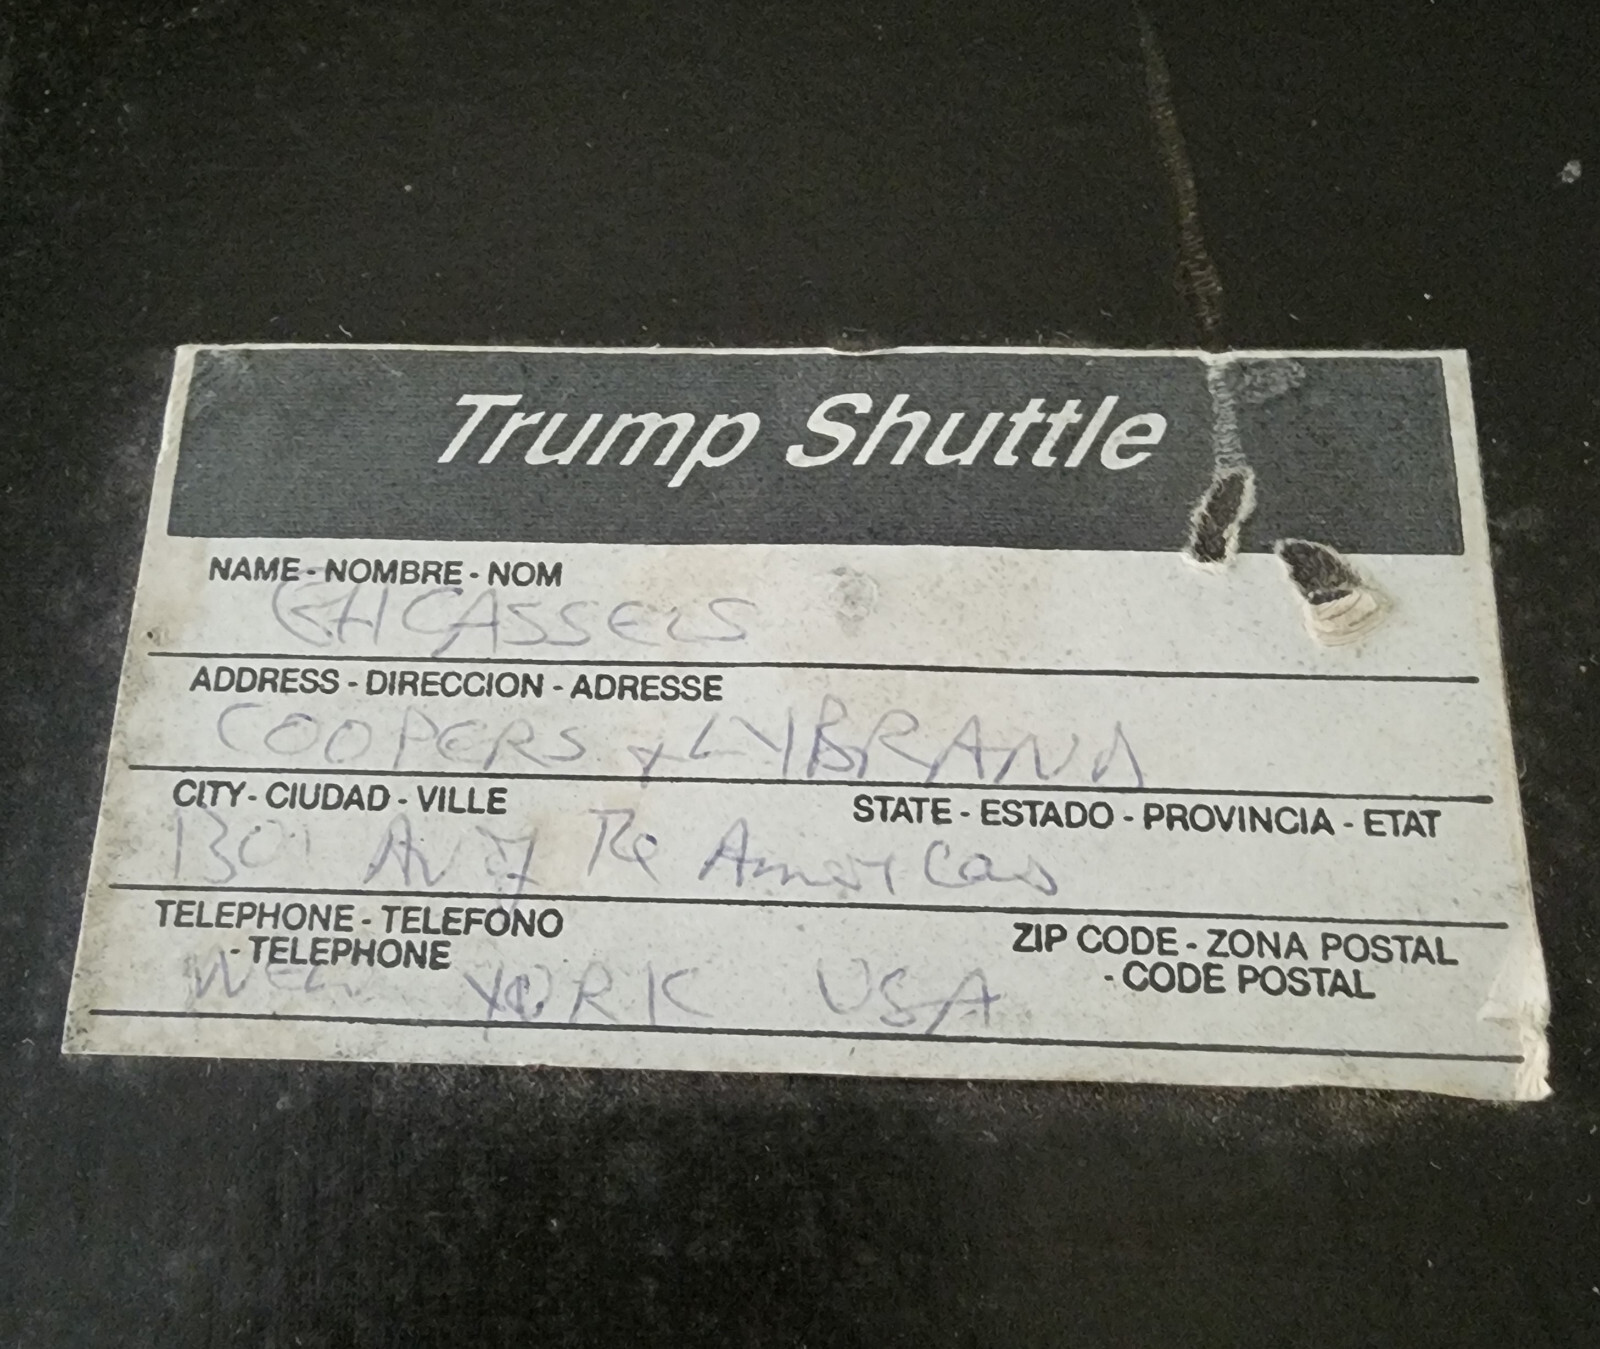 Trump Shuttle
NAME - NOMBRE - NOM
EH CASSELS
ADDRESS - DIRECCION - ADRESSE
COOPERS & LYBRAND
CITY - CIUDAD - VILLE STATE - ESTADO - PROVINCIA - ETAT
1301 Av of The Americas
TELEPHONE - TELEFONO
- TELEPHONE
ZIP CODE - ZONA POSTAL
- CODE POSTAL
NEW YORK USA